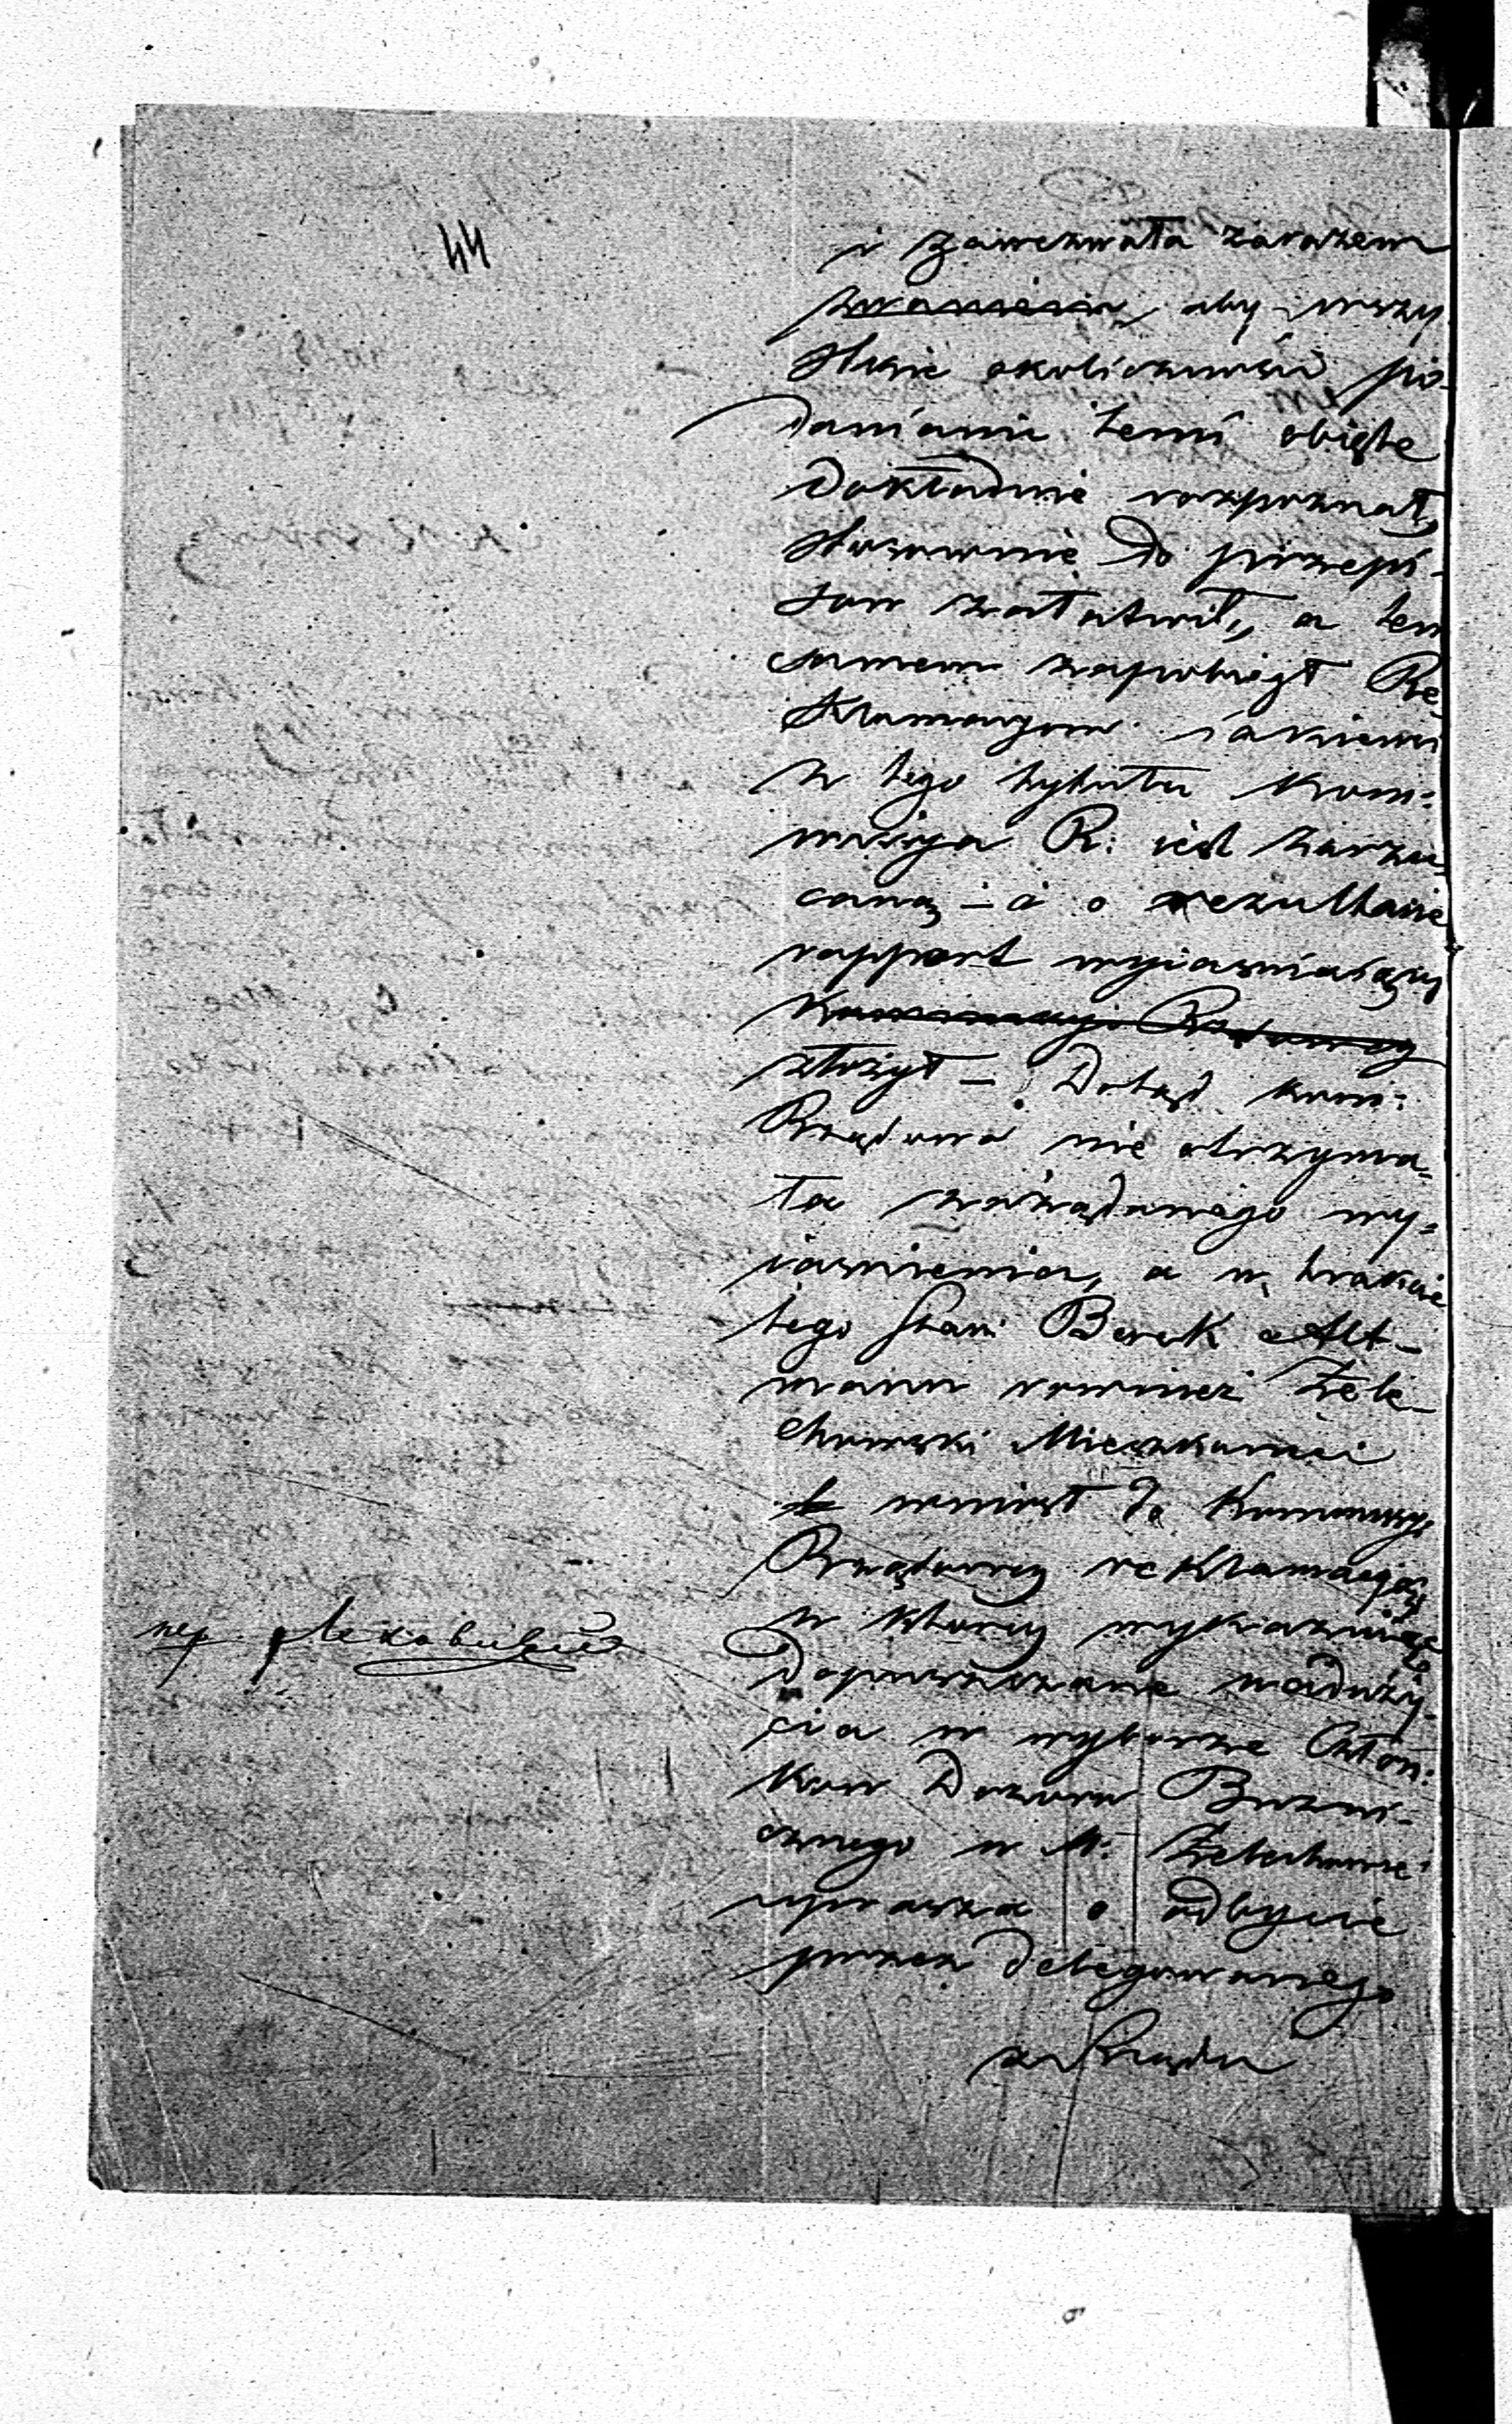 44
i zawezwała zarazem
aby wszy
stkie okoliczności po-
daniami temi obięte
dokładnie rozpoznał,
stosownie do przepi-
sow załatwił, a tem
samem zapobiegł Re-
klamacyom iakiemi
z tego tytułu Kom:
missya R: iest zarzu
caną – i o rezultacie
rapport wyiaśniaiący
Kommissyi Rządowey
złożył – Dotąd kom:
Rządowa nie otrzyma-
ła zażądanego wy-
iaśnienia, a w trakcie
tego Stari Berek Alt-
mann rownież Żele-
chowski Mieszkaniec
wniosł do Kommissyi
Rządowey reklamacyą
w ktorey wykazuiąc
dopuszczane naduży-
cia w wyborze Człon:
kow Dozoru Bożni-
cznego w M: Żelechowie
uprasza o odbycie
przez delegowanego
z Rządu